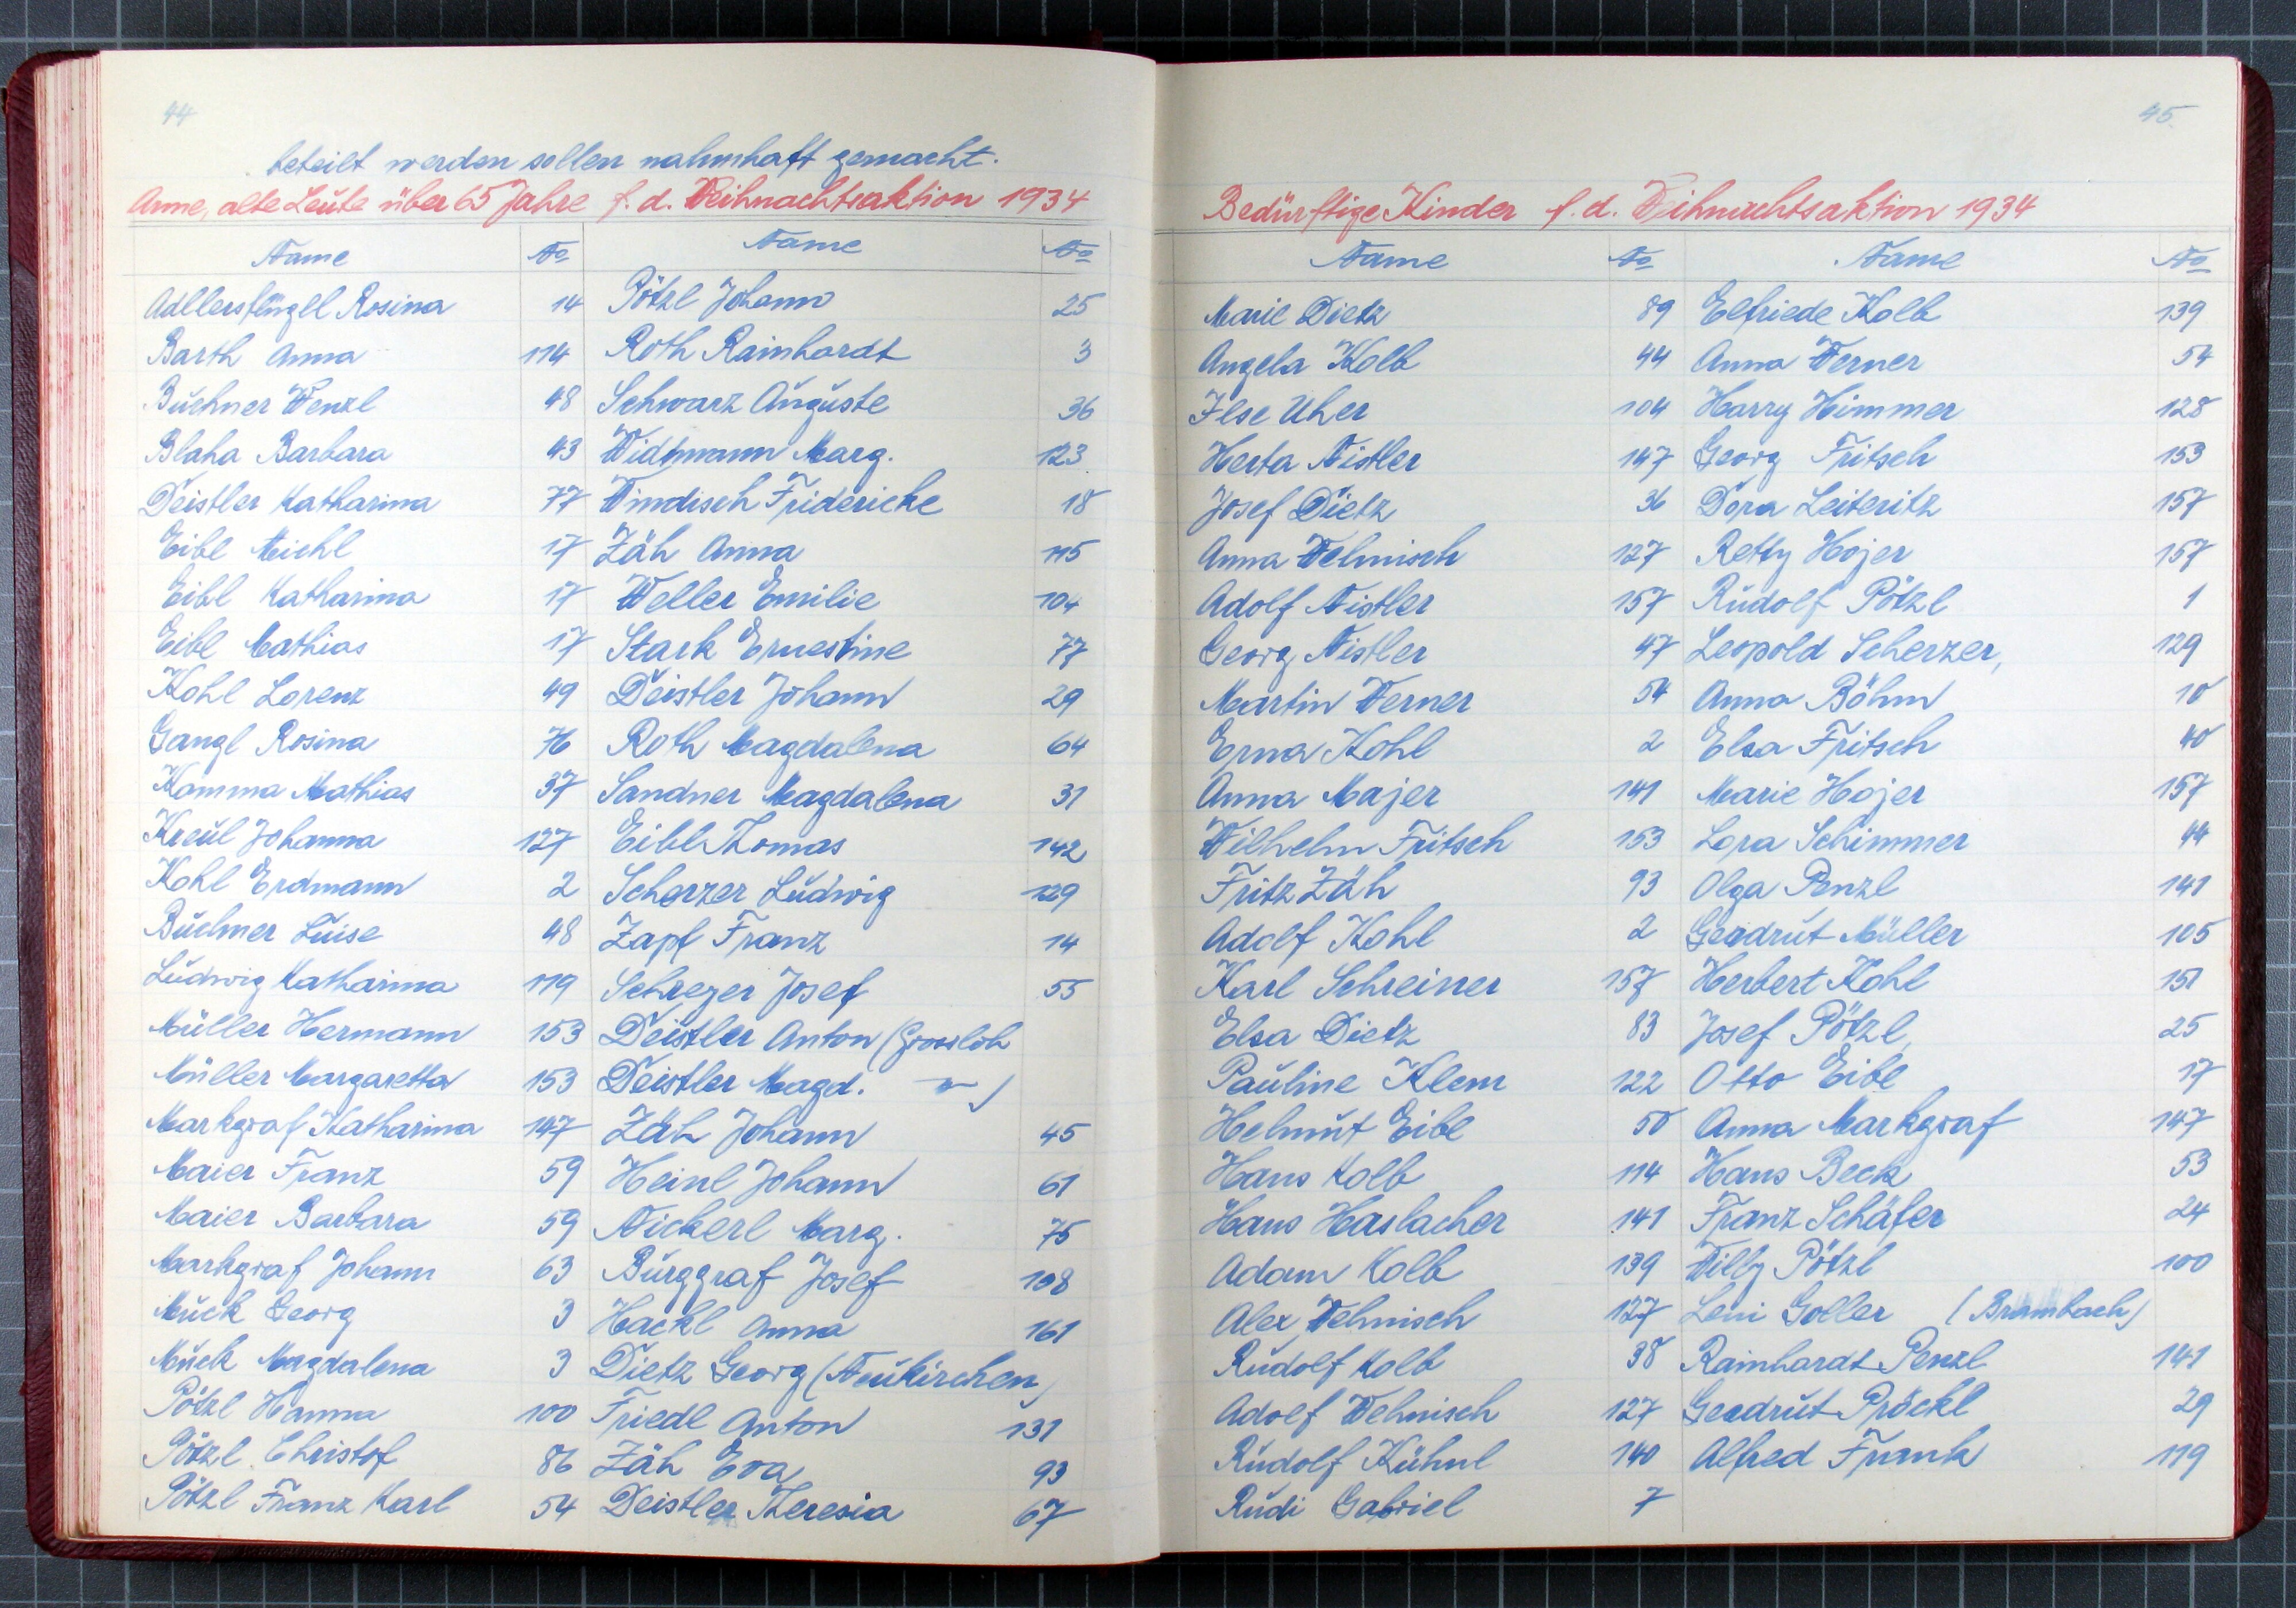 44
beteilt werden sollen nahmhaft gemacht.
Arme, alte Leute über 65 Jahre f. d. Weihnachtsaktion 1934
Name No Name No
Adllersflügel Rosina 14 Pötzl Johann 25
Barth Anna 114 Roth Rainhardt 3
Buchner Wenzl 48 Schwarz Auguste 36
Blaha Barbara 43 Widtmann Marg. 123
Deistler Katharina 77 Windisch Fridericke 18
Eibl Michl 17 Zäh Anna 115
Eibl Katharina 17 Weller Emilie 104
Eibl Mathias 17 Stark Ernestine 77
Kohl Lorenz 49 Deistler Johann 29
Gangl Rosina 76 Roth Magdalena 64
Komma Mathias 37 Sandner Magdalena 31
Kreul Johanna 127 Eibl Thomas 142
Kohl Erdmann 2 Scherzer Ludwig 129
Buchner Luise 48 Zapf Franz 14
Ludwig Katharina 119 Schreyer Josef 55
Müller Hermann 153 Deistler Anton (Grossloh
Müller Margaretta 153 Deistler Magd. " )
Markgraf Katharina 147 Zäh Johann 45
Maier Franz 59 Heinl Johann 61
Maier Barbara 59 Nickerl Marg. 75
Markgraf Johann 63 Burggraf Josef 108
Muck Georg 3 Hackl Anna 161
Muck Magdalena 3 Dietz Georg (Neukirchen)
Pötzl Hanna 100 Friedl Anton 131
Pötzl Christof 86 Zäh Eva 93
Pötzl Franz Karl 54 Deistler Theresia 67
45
Bedürftige Kinder f. d. Weihnachtsaktion 1934
Name No Name No
Marie Dietz 89 Elfriede Kolb 139
Angela Kolb 44 Anna Werner 54
Ilse Uher 104 Harry Himmer 128
Herta Nistler 147 Georg Fritsch 153
Josef Dietz 36 Dora Leiteritz 157
Anna Welmisch 127 Retty Hojer 157
Adolf Nistler 157 Rudolf Pötzl 1
Georg Nistler 47 Leopold Scherzer, 129
Martin Werner 54 Anna Böhm 10
Erna Kohl 2 Elsa Fritsch 40
Anna Majer 141 Marie Hojer 157
Wilhelm Fritsch 153 Lora Schimmer 44
Fritz Zäh 93 Olga Penzl 141
Adolf Kohl 2 Gerdrut Müller 105
Karl Schreiner 157 Herbert Kohl 151
Elsa Dietz 83 Josef Pötzl, 25
Pauline Klem 122 Otto Eibl 17
Helmut Eibl 50 Anna Markgraf 147
Hans Kolb 114 Hans Beck 53
Hans Haslacher 141 Franz Schäfer 24
Adam Kolb 139 Willy Pötzl 100
Alex Wehnisch 127 Leni Goller (Brambach)
Rudolf Kolb 38 Rainhardt Penzl 141
Adolf Wehnisch 127 Gerdrut Pröckl 29
Rudolf Kühnl 140 Alfred Frank 119
Rudi Gabriel 7